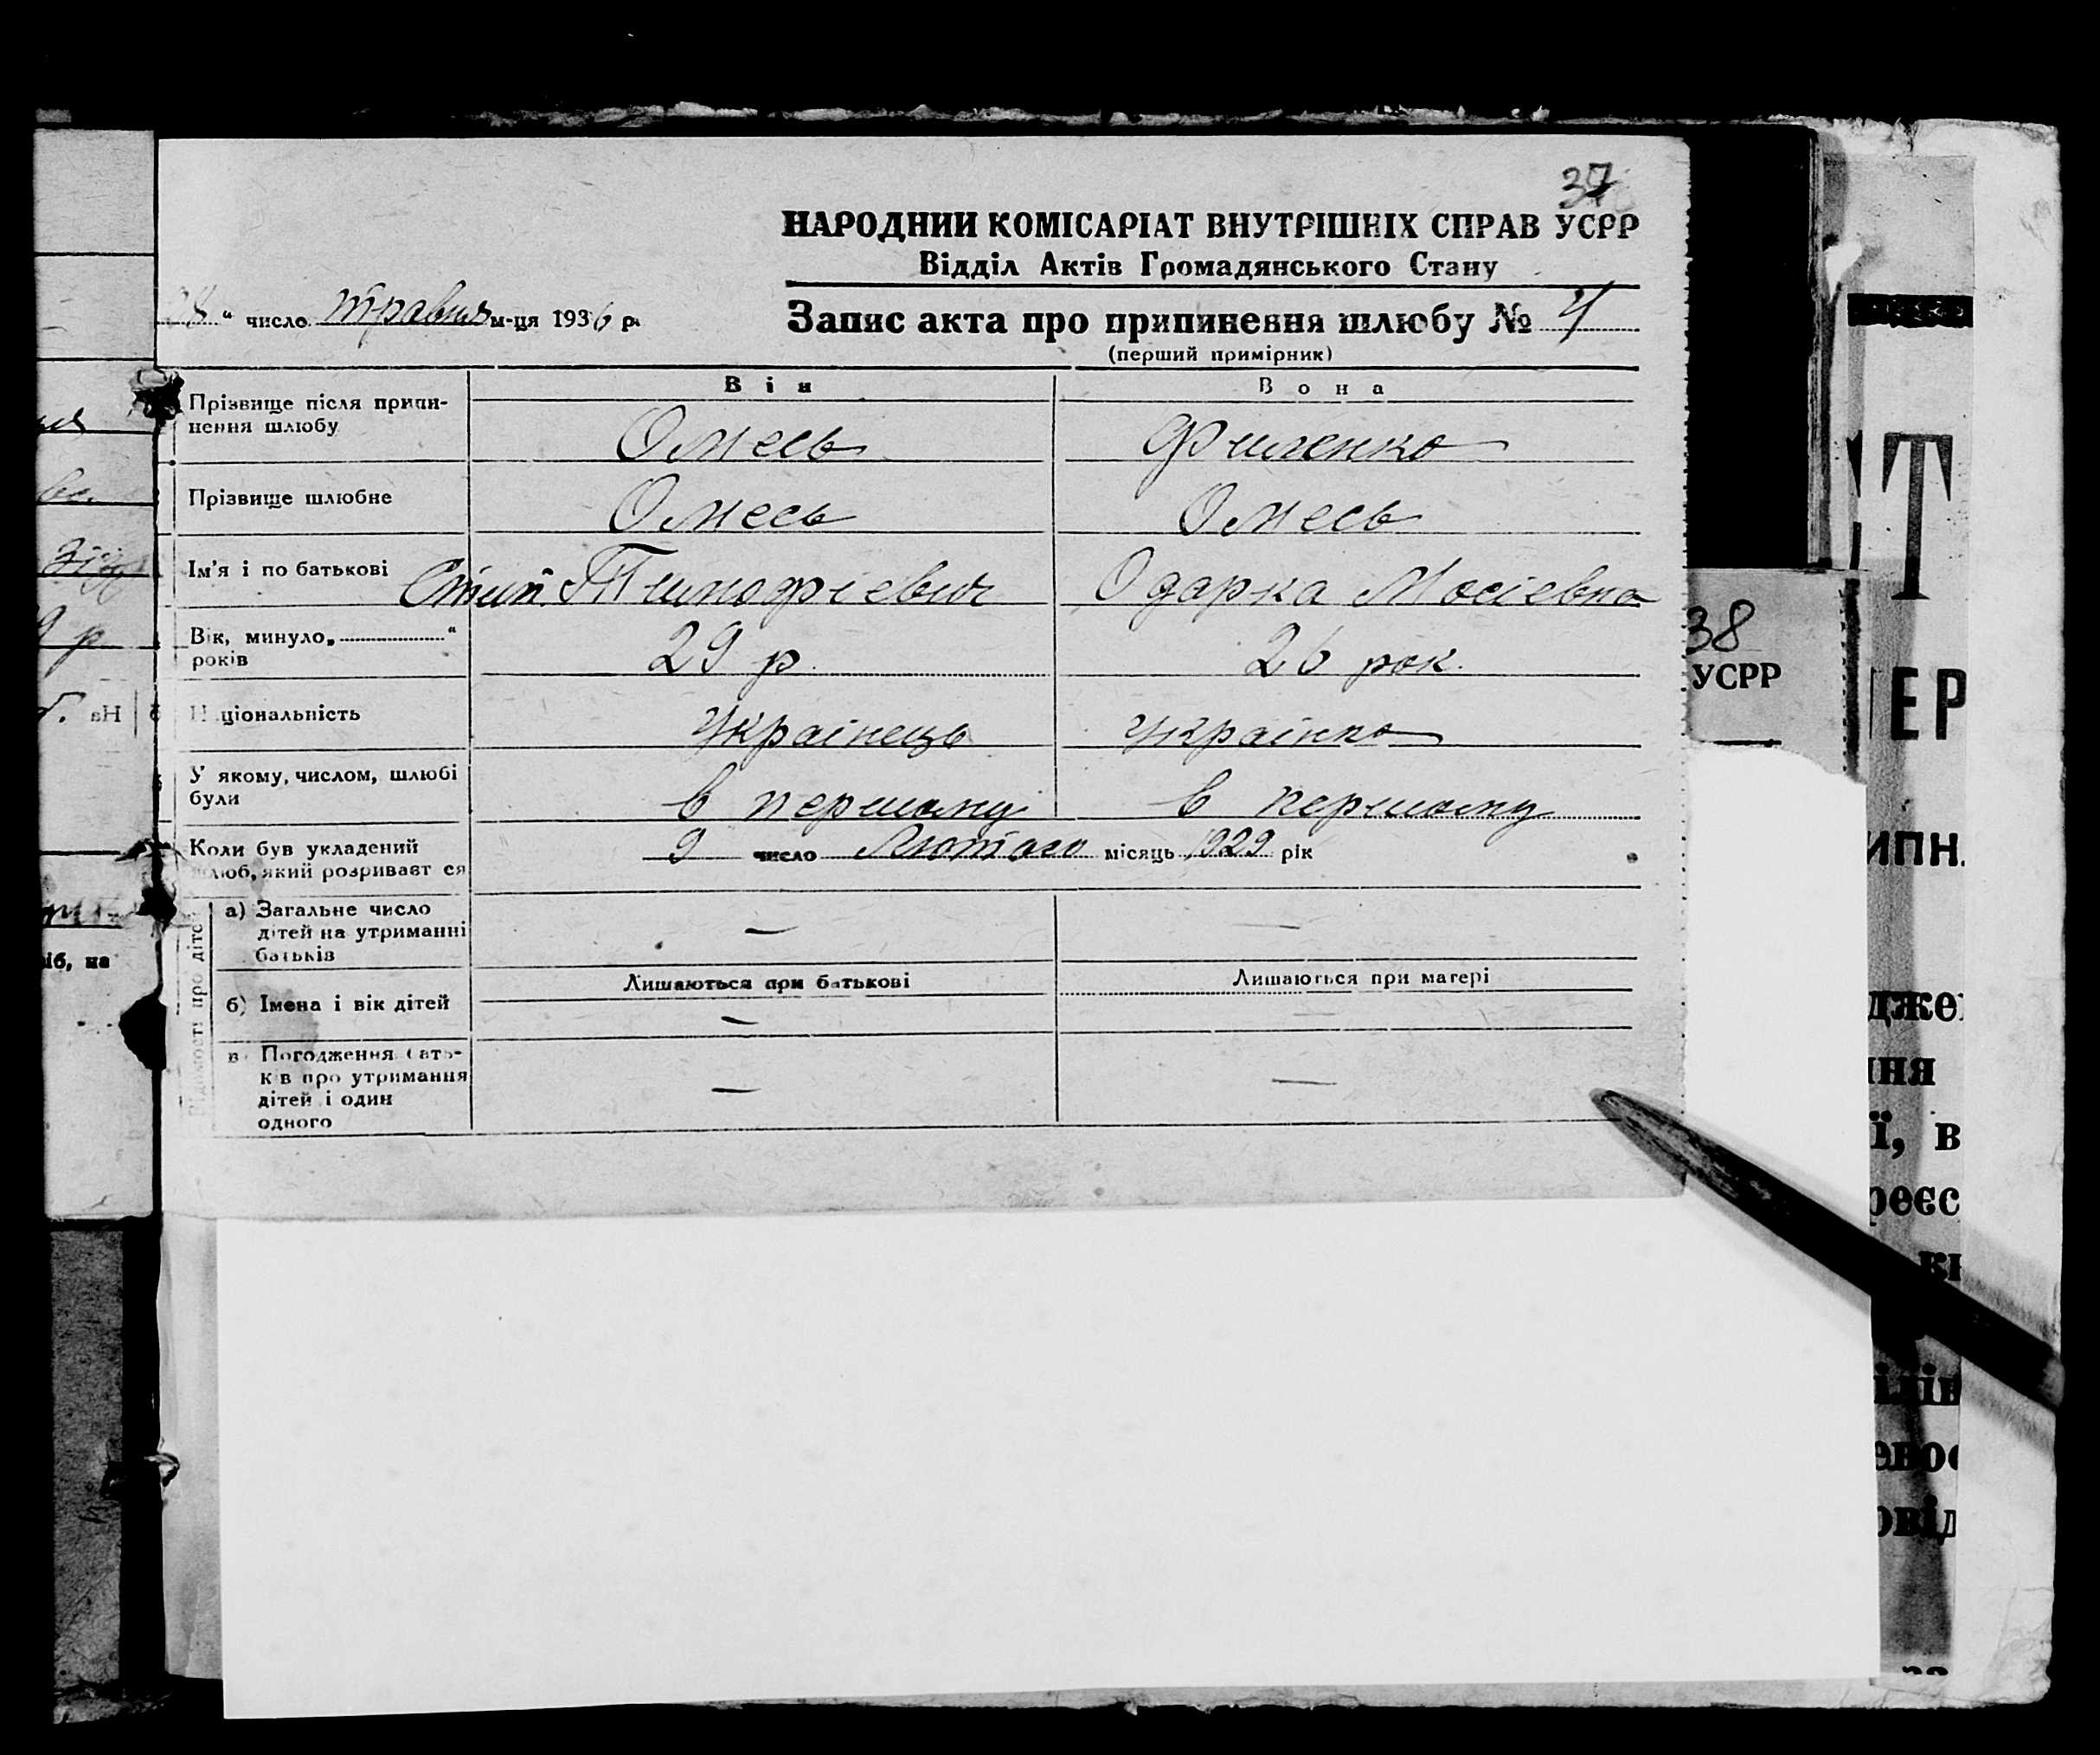 37
НАРОДНИЙ КОМІСАРІАТ ВНУТРІШНІХ СПРАВ УСРР
Відділ Актів Громадянського Стану
" число травня м-ця 1936 р.
Запис акта про припинення шлюбу № 4
(перший примірник)
Він Вона
Прізвище після припи-
нення шлюбу
Омесь Филенко
Прізвище шлюбне Омесь Омесь
Ім'я і по батькові Тимофієвич Одарка Мосіевна
Вік, минуло „ “
років
29 р. 26 рок.
Національність Українець Українка
У якому, числом, шлюбі
були
в першому в першому
Коли був укладений
шлюб, який розривається
9 число Лютого місяць 1929 рік
Відомості про дітей
а) Загальне число
дітей на утриманні
батьків
— —
Лишаються при батькові Лишаються при матері
б) Імена і вік дітей — —
в) Погодження бать-
ків про утримання
дітей і один
одного
— —
38
УСРР
Т
ЕР
ИПН.
дже
ння
ї, в
реєс
кн
ілів
овід
іб, на
9 р
На